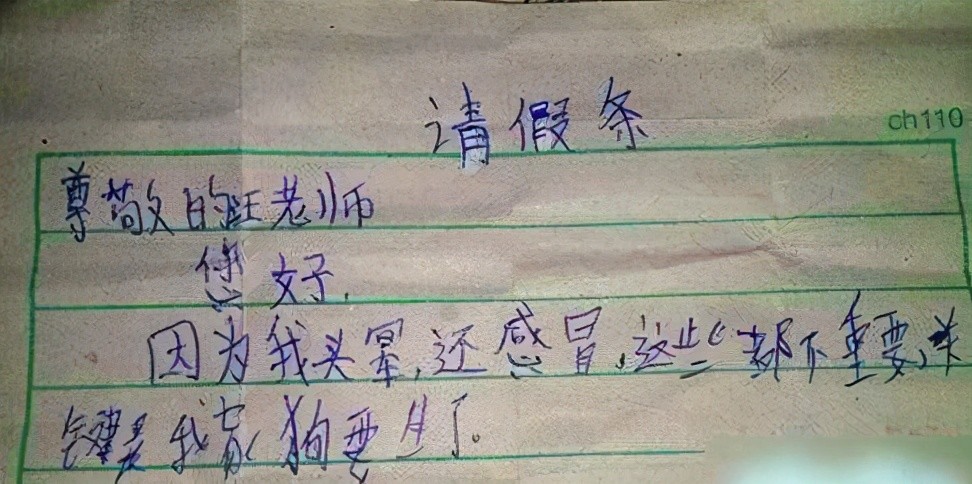 请假条
ch110
尊敬的旺老师
您好.
因为我头晕,还感冒,这些都不重要,关
键是我家狗要生了。